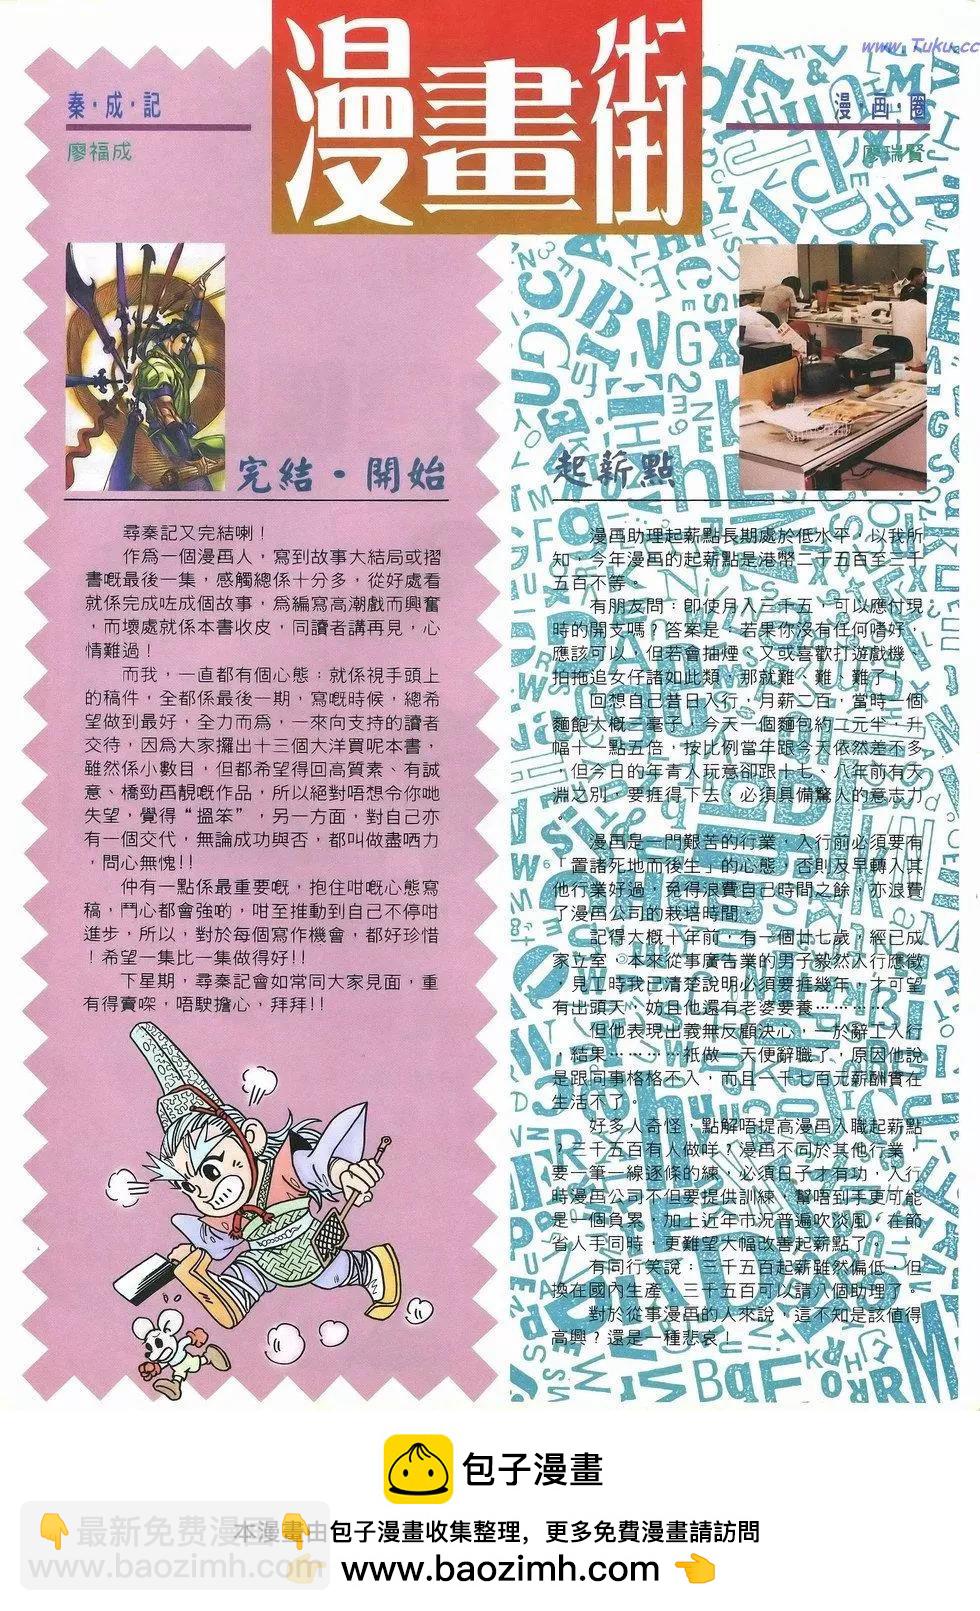 漫畫街
www.Tuku.cc
秦·成·記
廖福成
完結·開始
尋秦記又完結喇！
作為一個漫畫人，寫到故事大結局或摺
書嘅最後一集，感觸總係十分多，從好處看
就係完成咗成個故事，為編寫高潮戲而興奮
，而壞處就係本書收皮，同讀者講再見，心
情難過！
而我，一直都有個心態：就係視手頭上
的稿件，全都係最後一期，寫嘅時候，總希
望做到最好，全力而為，一來向支持的讀者
交待，因為大家攞出十三個大洋買呢本書，
雖然係小數目，但都希望得回高質素、有誠
意、橋勁畫靚嘅作品，所以絕對唔想令你哋
失望，覺得“搵笨”，另一方面，對自己亦
有一個交代，無論成功與否，都叫做盡哂力
，問心無愧!!
仲有一點係最重要嘅，抱住咁嘅心態寫
稿，鬥心都會強啲，咁至推動到自己不停咁
進步，所以，對於每個寫作機會，都好珍惜
！希望一集比一集做得好!!
下星期，尋秦記會如常同大家見面，重
有得賣㗎，唔駛擔心，拜拜!!
漫·画·圈
廖瑞賢
起薪點
漫畫助理起薪點長期處於低水平，以我所
知，今年漫畫的起薪點是港幣二千五百至三千
五百不等。
有朋友問：即使月入三千五，可以應付現
時的開支嗎？答案是：若果你沒有任何嗜好，
應該可以，但若會抽煙、又或喜歡打遊戲機、
拍拖追女仔諸如此類，那就難、難、難了。
回想自己昔日入行，月薪二百，當時一個
麵飽大概二毫子，今天一個麵包約二元半，升
幅十一點五倍，按比例當年跟今天依然差不多
，但今日的年青人玩意卻跟十七、八年前有天
淵之別，要捱得下去，必須具備驚人的意志力
。
漫畫是一門艱苦的行業，入行前必須要有
「置諸死地而後生」的心態，否則及早轉入其
他行業好過，免得浪費自己時間之餘，亦浪費
了漫畫公司的栽培時間。
記得大概十年前，有一個廿七歲，經已成
家立室，本來從事廣告業的男子毅然入行應徵
，見工時我已清楚說明必須要捱幾年，才可望
有出頭天，妨且他還有老婆要養…………
但他表現出義無反顧決心，一於辭工入行
，結果…………衹做一天便辭職了，原因他說
是跟同事格格不入，而且一千七百元薪酬實在
生活不了。
好多人奇怪，點解唔提高漫畫入職起薪點
？三千五百有人做咩？漫畫不同於其他行業，
要一筆一線逐條的練，必須日子才有功，入行
時漫畫公司不但要提供訓練，幫唔到手更可能
是一個負累，加上近年市況普遍吹淡風，在節
省人手同時，更難望大幅改善起薪點了。
有同行笑說：三千五百起薪雖然偏低，但
換在國內生產，三千五百可以請八個助理了。
對於從事漫畫的人來說，這不知是該值得
高興？還是一種悲哀！
包子漫畫
本漫畫由包子漫畫收集整理，更多免費漫畫請訪問
www.baozimh.com
最新免費漫畫
www.baozimh.com